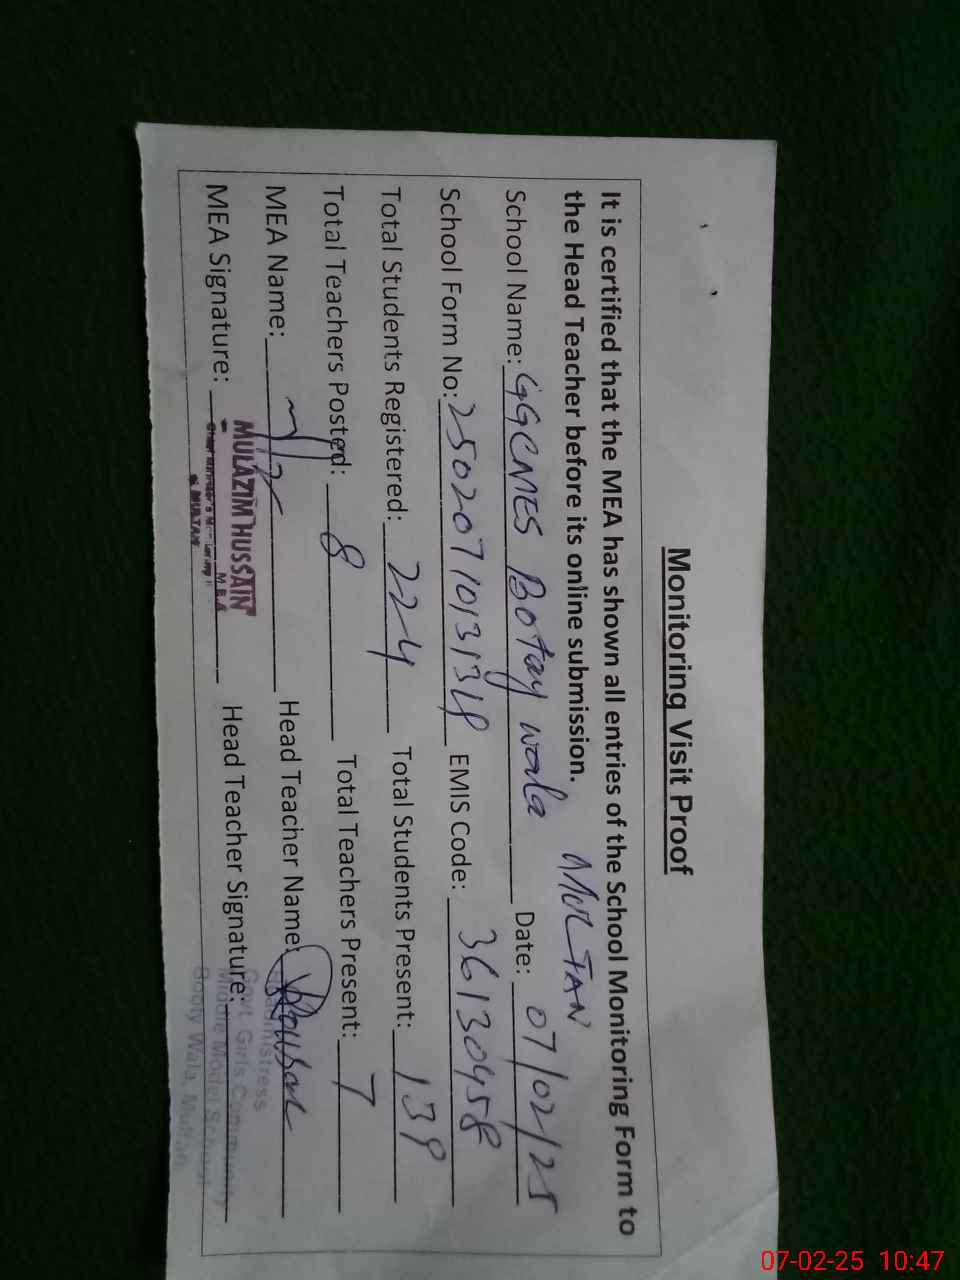 Monitoring Visit Proof
It is certified that the MEA has shown all entries of the School Monitoring Form to
the Head Teacher before its online submission.
MULTAN
School Name: GGCMES Botay wala Date: 07/02/25
School Form No: EMIS Code: 36130458
Total Students Registered: 224 Total Students Present: 139
Total Teachers Posted: 8 Total Teachers Present: 7
MEA Name: Head Teacher Name:
MEA Signature: Head Teacher Signature:
MULAZIM HUSSAIN
M.E.A
Chief Minister's Monitoring
MULTAN
Headmistress
Govt. Girls Community
Middle Model School
Booty Wala, Multan
07-02-25 10:47